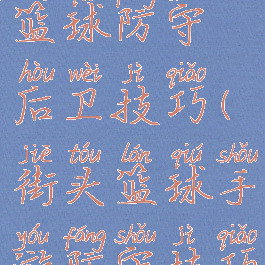 篮球防守
hòu wèi jì qiǎo
后卫技巧(
jiē tóu lán qiú shǒu
街头篮球手
yóu fáng shǒu jì qiǎo
防守技巧